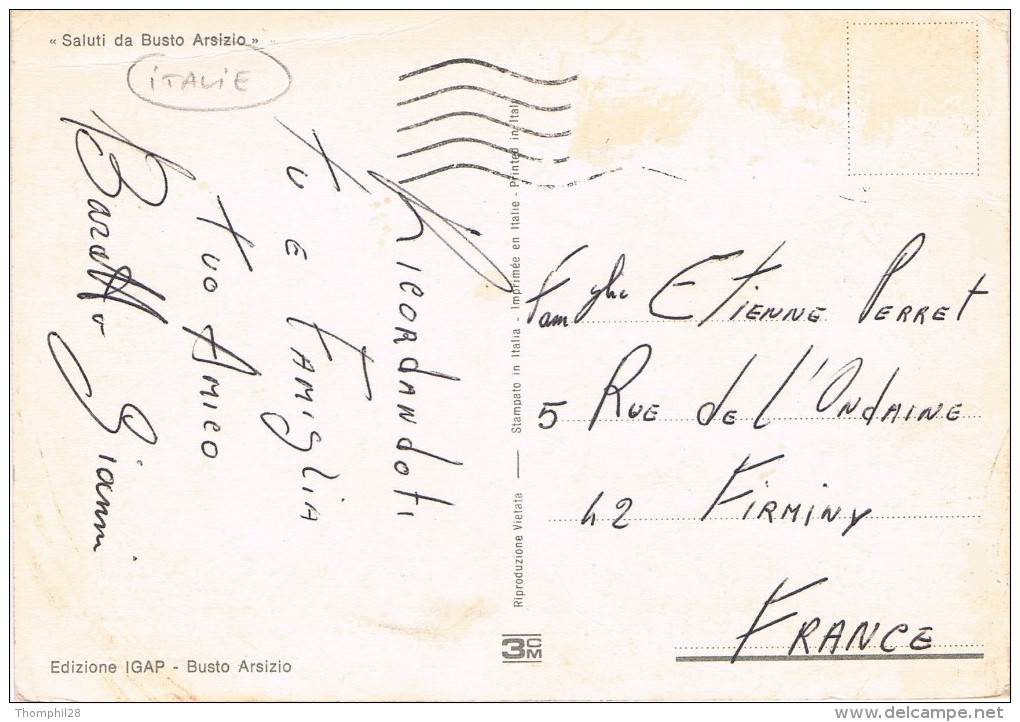 « Saluti da Busto Arsizio »
ITALIE
RICORDANDOTI
TU E FAMIGLIA
TUO AMICO
Baratto Gianni
Riproduzione Vietata — Stampato in Italia - Imprimée en Italie - Printed in Italy
Etienne PERRET
5 RUE de L'ONDAINE
42 FIRMINY
FRANCE
3 COM
Edizione IGAP - Busto Arsizio
Thomphil28
www.delcampe.net